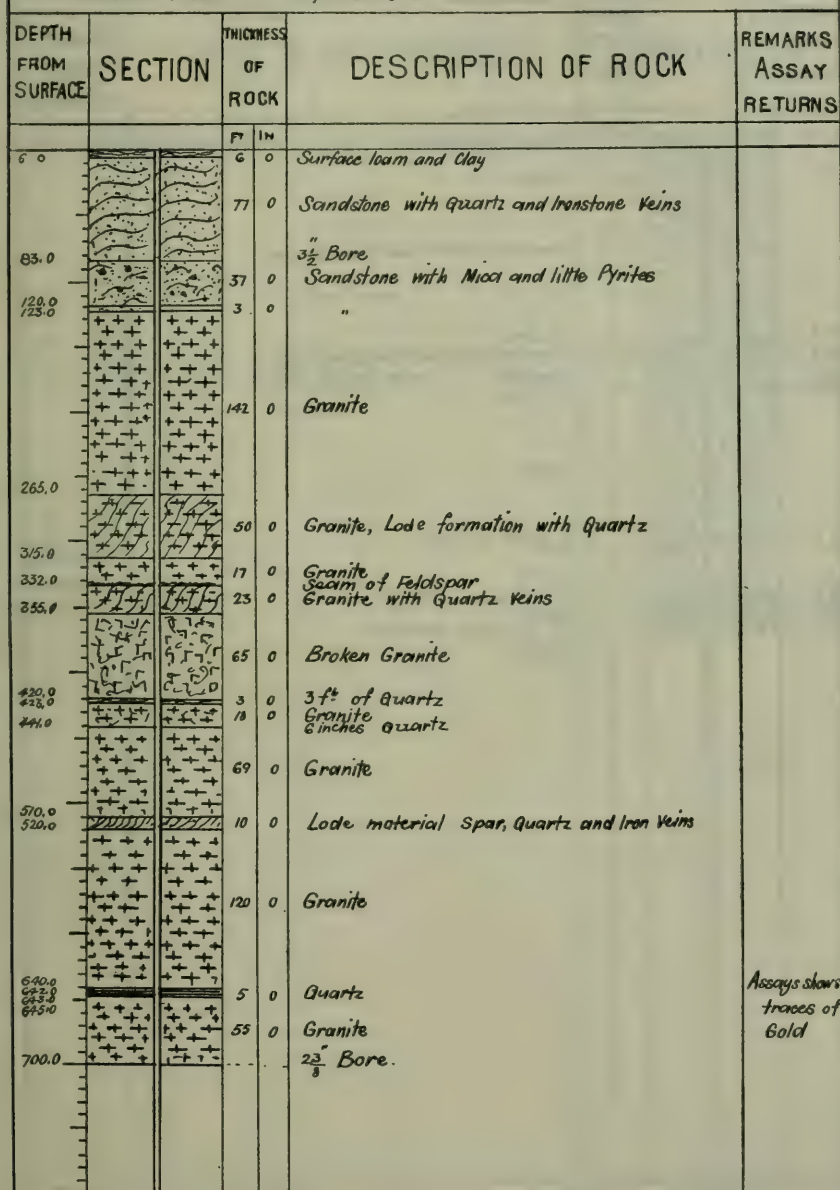 DEPTH FROM SURFACE SECTION THICKNESS OF ROCK DESCRIPTION OF ROCK REMARKS ASSAY RETURNS
FT IN
6 0 6 0 Surface loam and Clay
77 0 Sandstone with Quartz and Ironstone Veins
83.0 3½" Bore
37 0 Sandstone with Mica and little Pyrites
120.0
123.0 3 0 "
142 0 Granite
265.0
50 0 Granite, Lode formation with Quartz
315.0
17 0 Granite
332.0 Seam of Feldspar
23 0 Granite with Quartz Veins
355.0
65 0 Broken Granite
420.0 3 0 3 ft of Quartz
423.0 18 0 Granite
441.0 6 inches Quartz
69 0 Granite
510.0
520.0 10 0 Lode material Spar, Quartz and Iron Veins
120 0 Granite
640.0 Assays shows
642.0 5 0 Quartz traces of
643.0 Gold
645.0
55 0 Granite
700.0 2⅜" Bore.